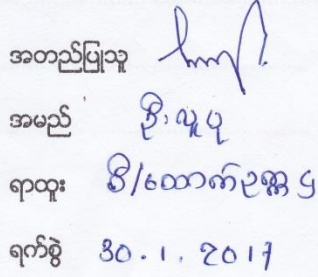 အတည်ပြုသူ
အမည် ဦးလူပု
ရာထူး စီ/ထောက်ဥက္ကဌ
ရက်စွဲ 30.1.2017